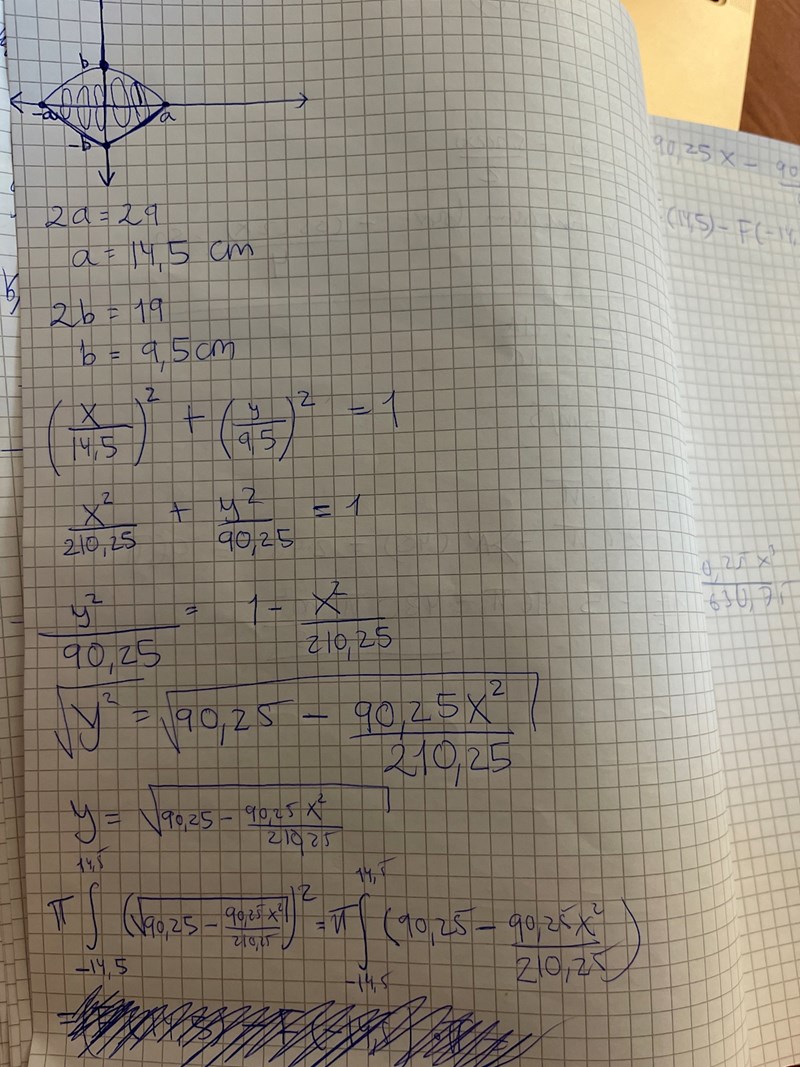 b
-a a
-b
2a = 29
a = 14,5 cm
2b = 19
b = 9,5 cm
(x/14,5)² + (y/9,5)² = 1
x²/210,25 + y²/90,25 = 1
y²/90,25 = 1 - x²/210,25
√y² = √(90,25 - 90,25x²/210,25)
y = √(90,25 - 90,25x²/210,25)
π ∫_{-14,5}^{14,5} (√(90,25 - 90,25x²/210,25))² = π ∫_{-14,5}^{14,5} (90,25 - 90,25x²/210,25)
=
90,25 x - 90
(14,5) - F(-14,
0,25 x³
630,75